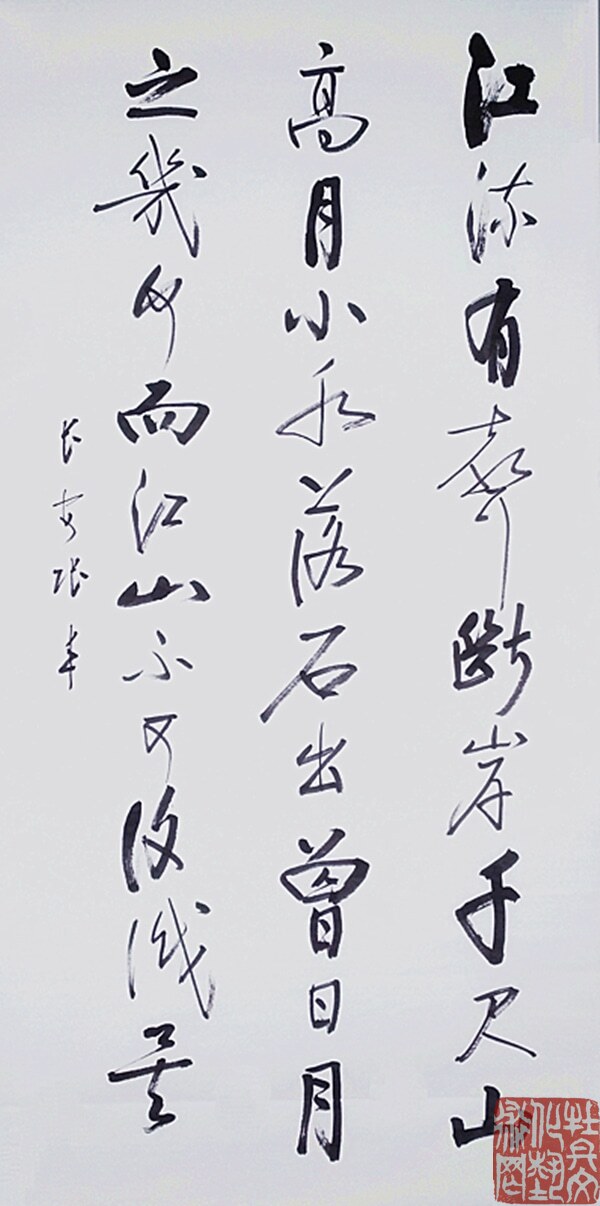 江流有聲斷岸千尺山
高月小水落石出曾日月
之幾何而江山不可復識矣
长安张